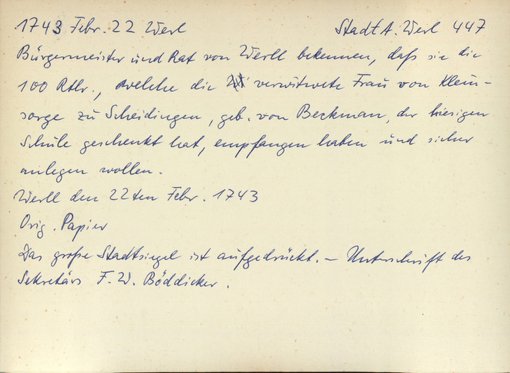 1743 Febr. 22 Werl StadtA. Werl 447
Bürgermeister und Rat von Werll bekennen, daß sie die
100 Rtlr., welche die verwitwete Frau von Klein-
sorge zu Scheidingen, geb. von Beckman, der hiesigen
Schule geschenkt hat, empfangen haben und sicher
anlegen wollen.
Werll den 22ten Febr. 1743
Orig. Papier
Das große Stadtsiegel ist aufgedrückt. – Unterschrift des
Sekretärs F. W. Böddicker.